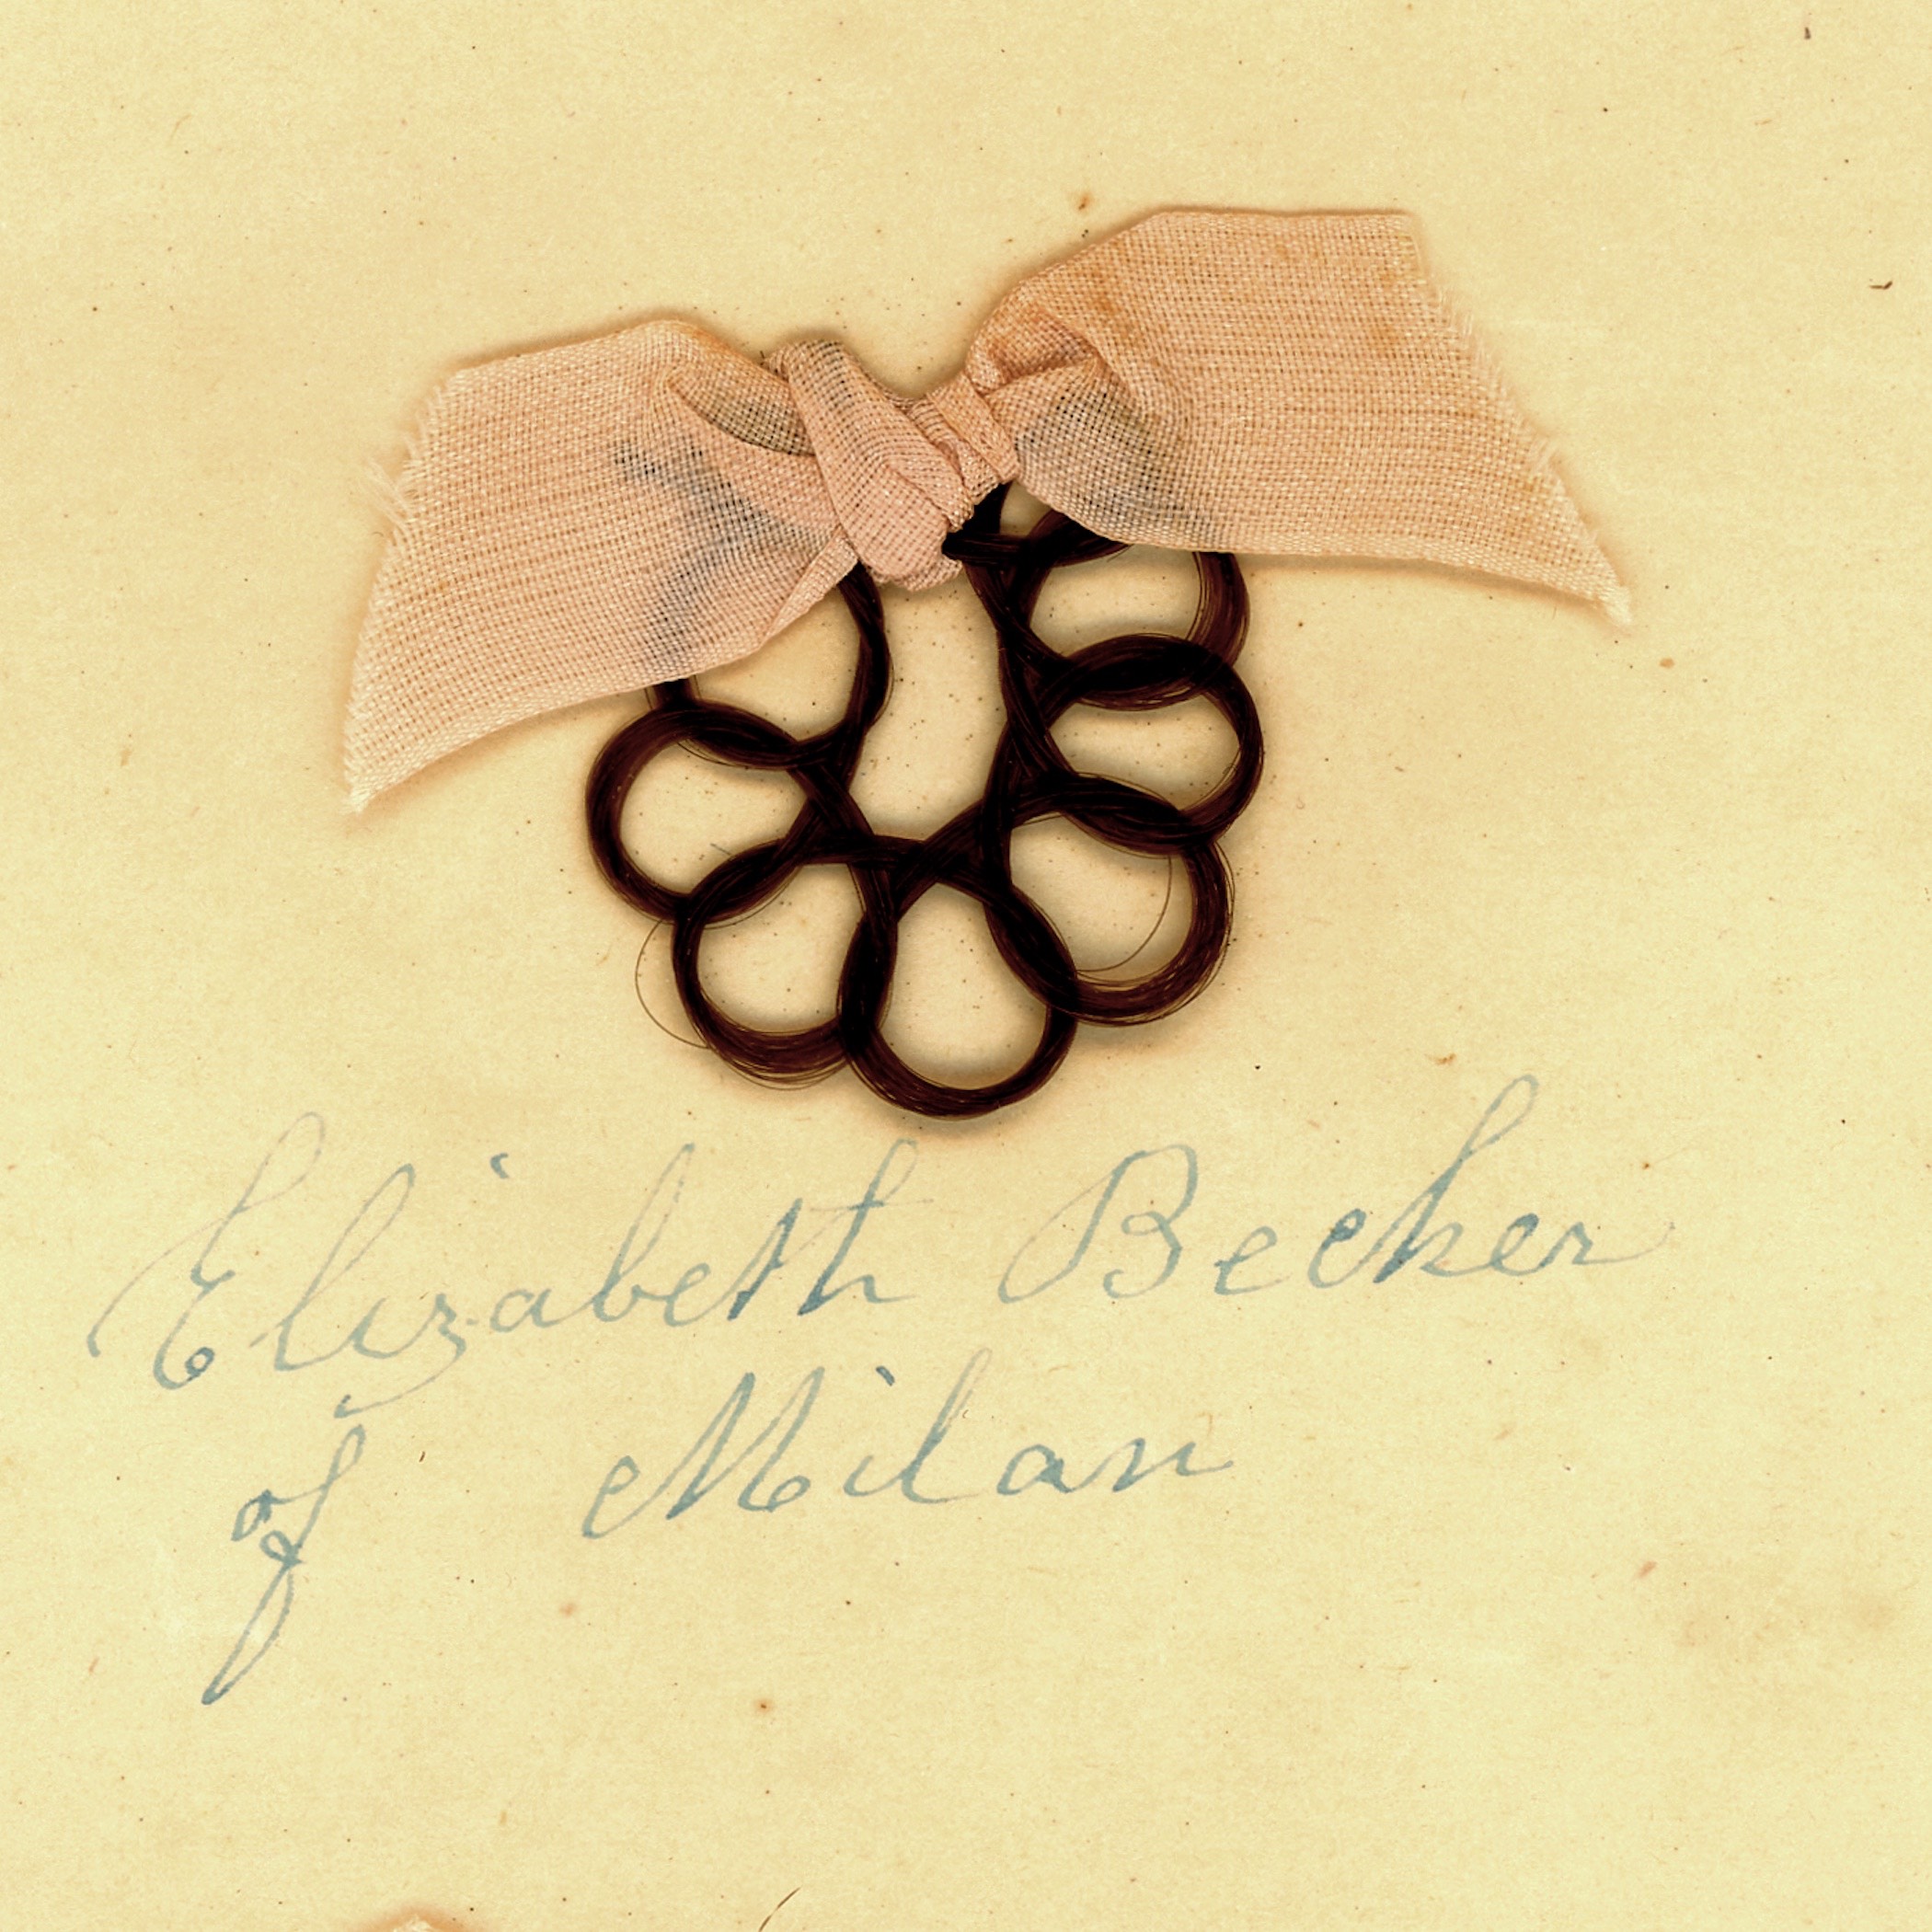 Elizabeth Becker
of Milan